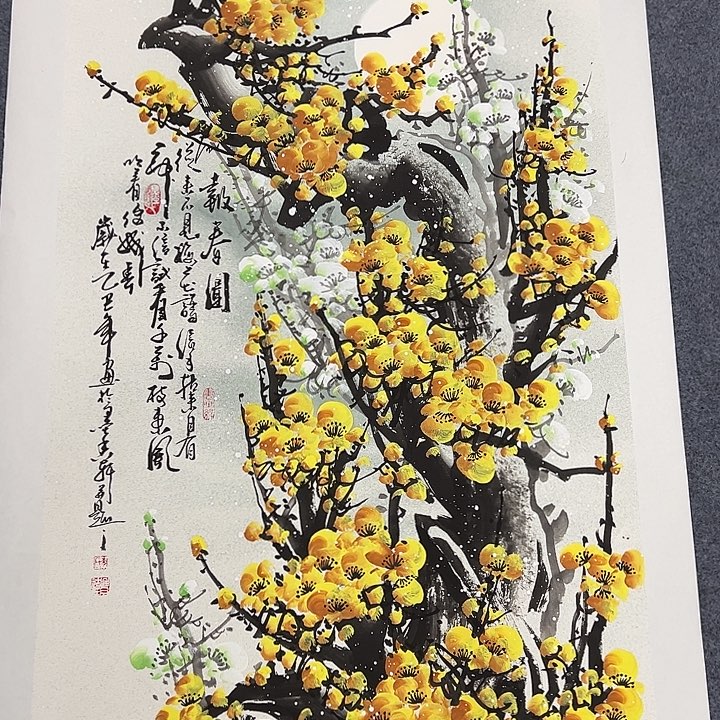 報春圖
從来不見梅花譜信手拈来自有
神不信試看千萬枝東風
吹着便成春
歲在乙巳年画於墨香軒